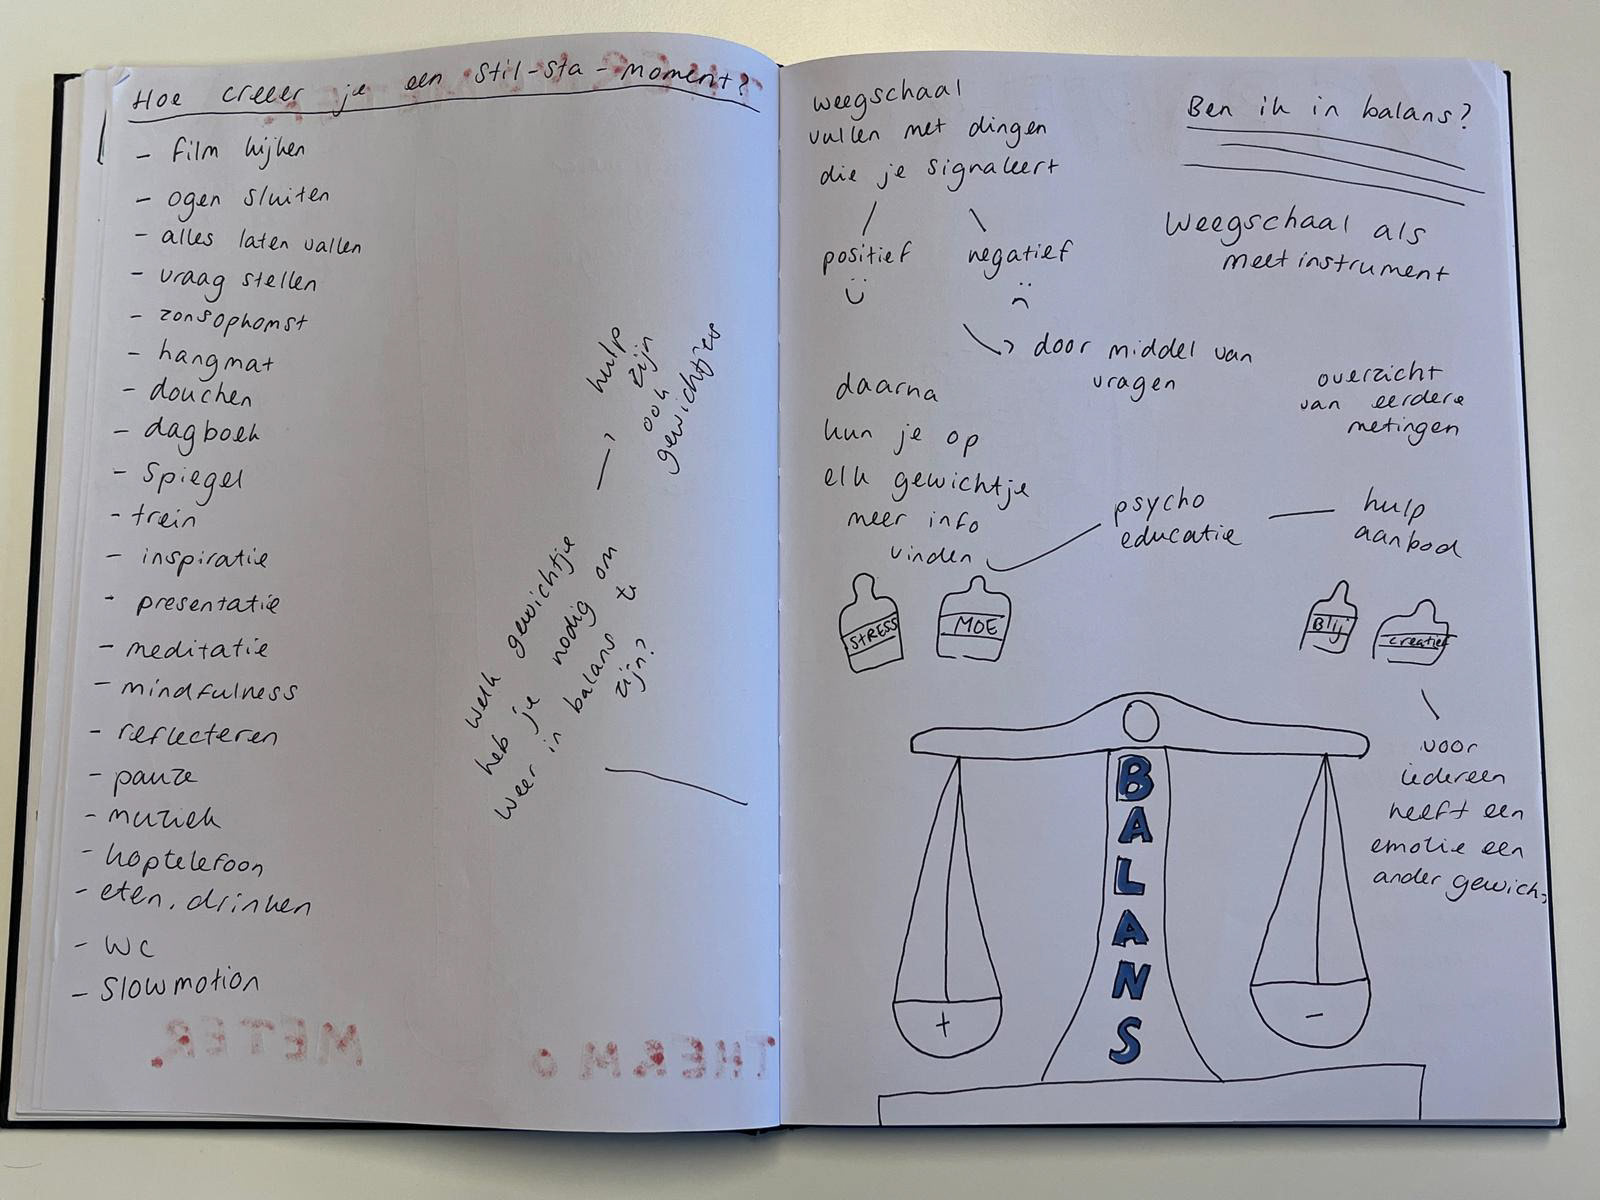 Hoe creëer je een stil-sta-moment?
- film kijken
- ogen sluiten
- alles laten vallen
- vraag stellen
- zonsopkomst
- hangmat
- douchen
- dagboek
- spiegel
- trein
- inspiratie
- presentatie
- meditatie
- mindfulness
- reflecteren
- pauze
- muziek
- koptelefoon
- eten, drinken
- wc
- slowmotion
welk gewichtje
heb je nodig om
weer in balans te
zijn?
hulp
zijn
ook
gewichtjes
THERMO METER
weegschaal
vullen met dingen
die je signaleert
positief
negatief
door middel van
vragen
daarna
kun je op
elk gewichtje
meer info
vinden
Ben ik in balans?
Weegschaal als
meetinstrument
overzicht
van eerdere
metingen
psycho
educatie
hulp
aanbod
STRESS
MOE
BLIJ
creatief
voor
iedereen
heeft een
emotie een
ander gewicht
BALANS
+
-